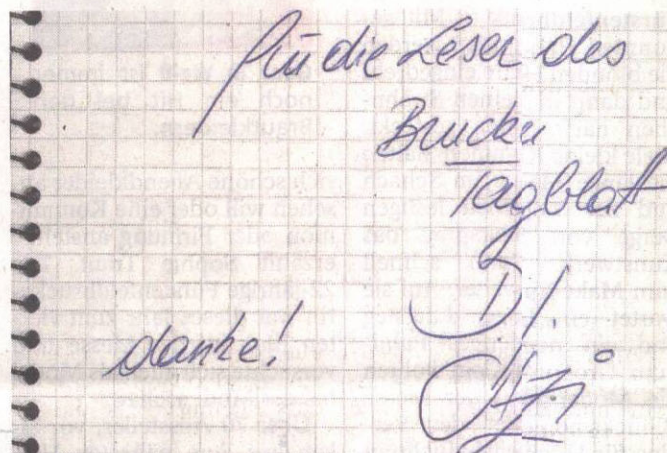 Für die Leser des
Brucker
Tagblatt
danke!